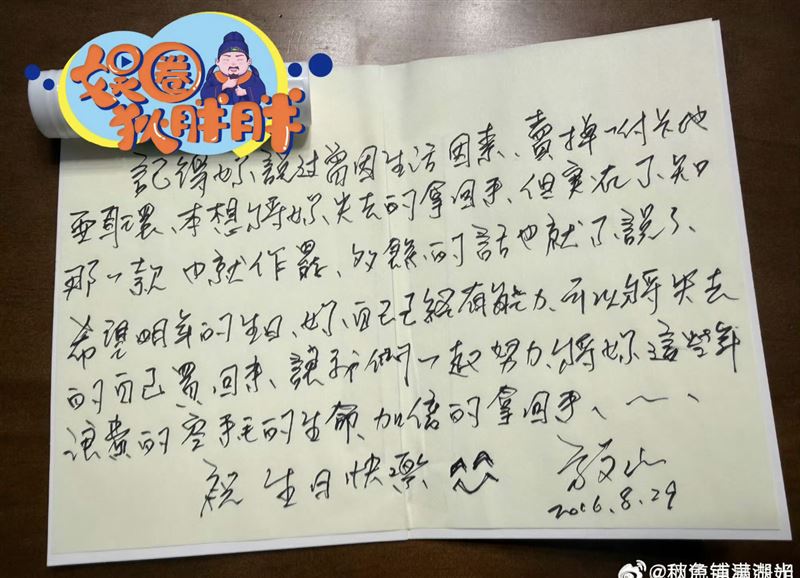 娱圈
狄胖胖
記得妳說过曾因生活因素、賣掉一付卡地
亞耳環、本想將妳失去的拿回來、但實在不知
那一款 也就作罷、多餘的話也就不說了、
希望明年的生日、妳自己已經有能力、可以將失去
的自己買回來、讓我們一起努力、將妳這些年
浪費的空耗的生命、加倍的拿回來、～、
祝 生日快樂 ^^
2016.8.29